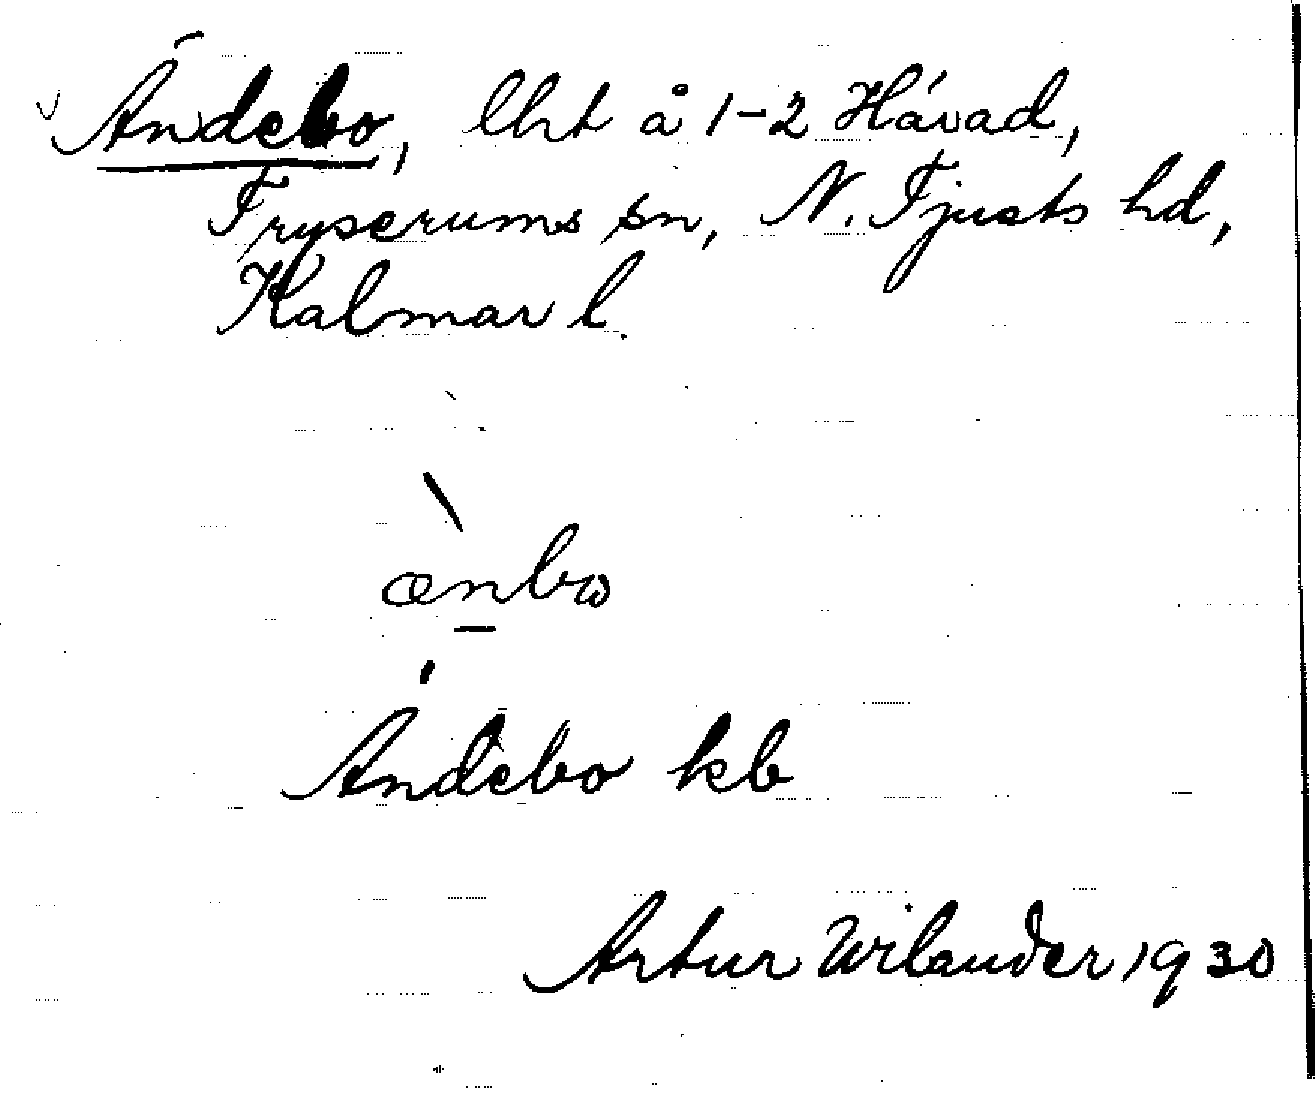 Ändebo, lht å 1-2 Håvad,
Fryserums sn, N. Tjusts hd,
Kalmar l.
ænbω
Ändebo kb
Artur Wilander 1930